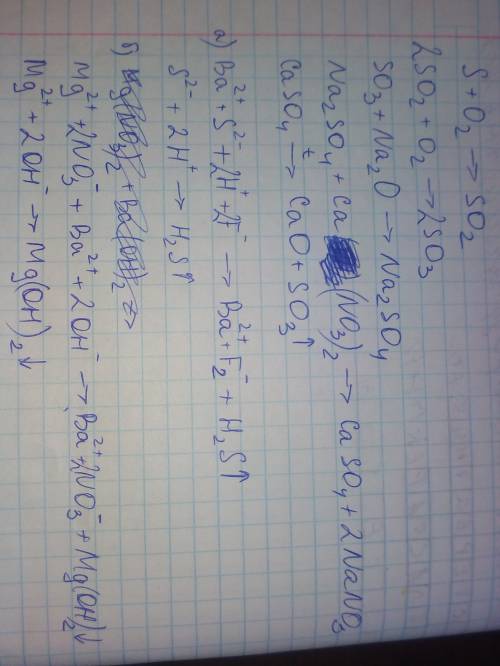 S + O₂ → SO₂
2SO₂ + O₂ → 2SO₃
SO₃ + Na₂O → Na₂SO₄
Na₂SO₄ + Ca(NO₃)₂ → CaSO₄ + 2NaNO₃
CaSO₄ →ᵗ CaO + SO₃↑
а) Ba²⁺ + S²⁻ + 2H⁺ + 2F⁻ → Ba²⁺ + F₂⁻ + H₂S↑
S²⁻ + 2H⁺ → H₂S↑
б) Mg(NO₃)₂ + Ba(OH)₂ →
Mg²⁺ + 2NO₃⁻ + Ba²⁺ + 2OH⁻ → Ba²⁺ + 2NO₃⁻ + Mg(OH)₂↓
Mg²⁺ + 2OH⁻ → Mg(OH)₂↓